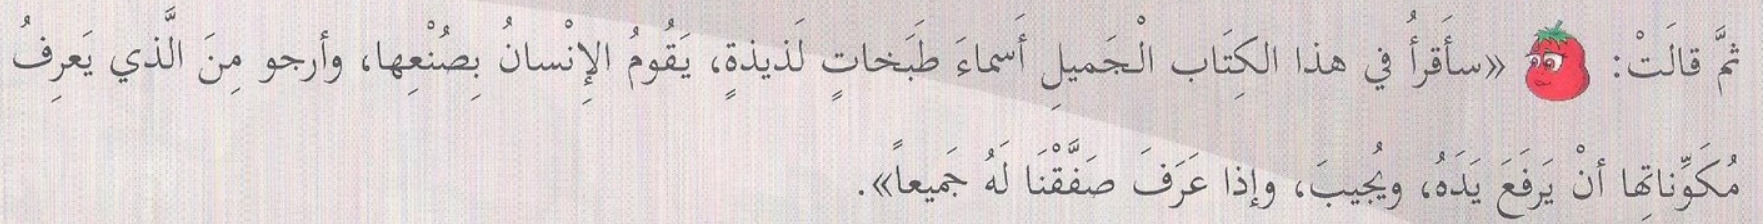 ثمَّ قالَتْ: «سأَقرأُ في هذا الكِتَاب الْجَميلِ أَسماءَ طَبَخاتٍ لَذيذةٍ، يَقُومُ الإِنْسانُ بِصُنْعِها، وأرجو مِنَ الَّذي يَعرِفُ
مُكَوِّناتِها أنْ يَرفَعَ يَدَهُ، ويُجيبَ، وإذا عَرَفَ صَفَّقْنَا لَهُ جَميعاً».